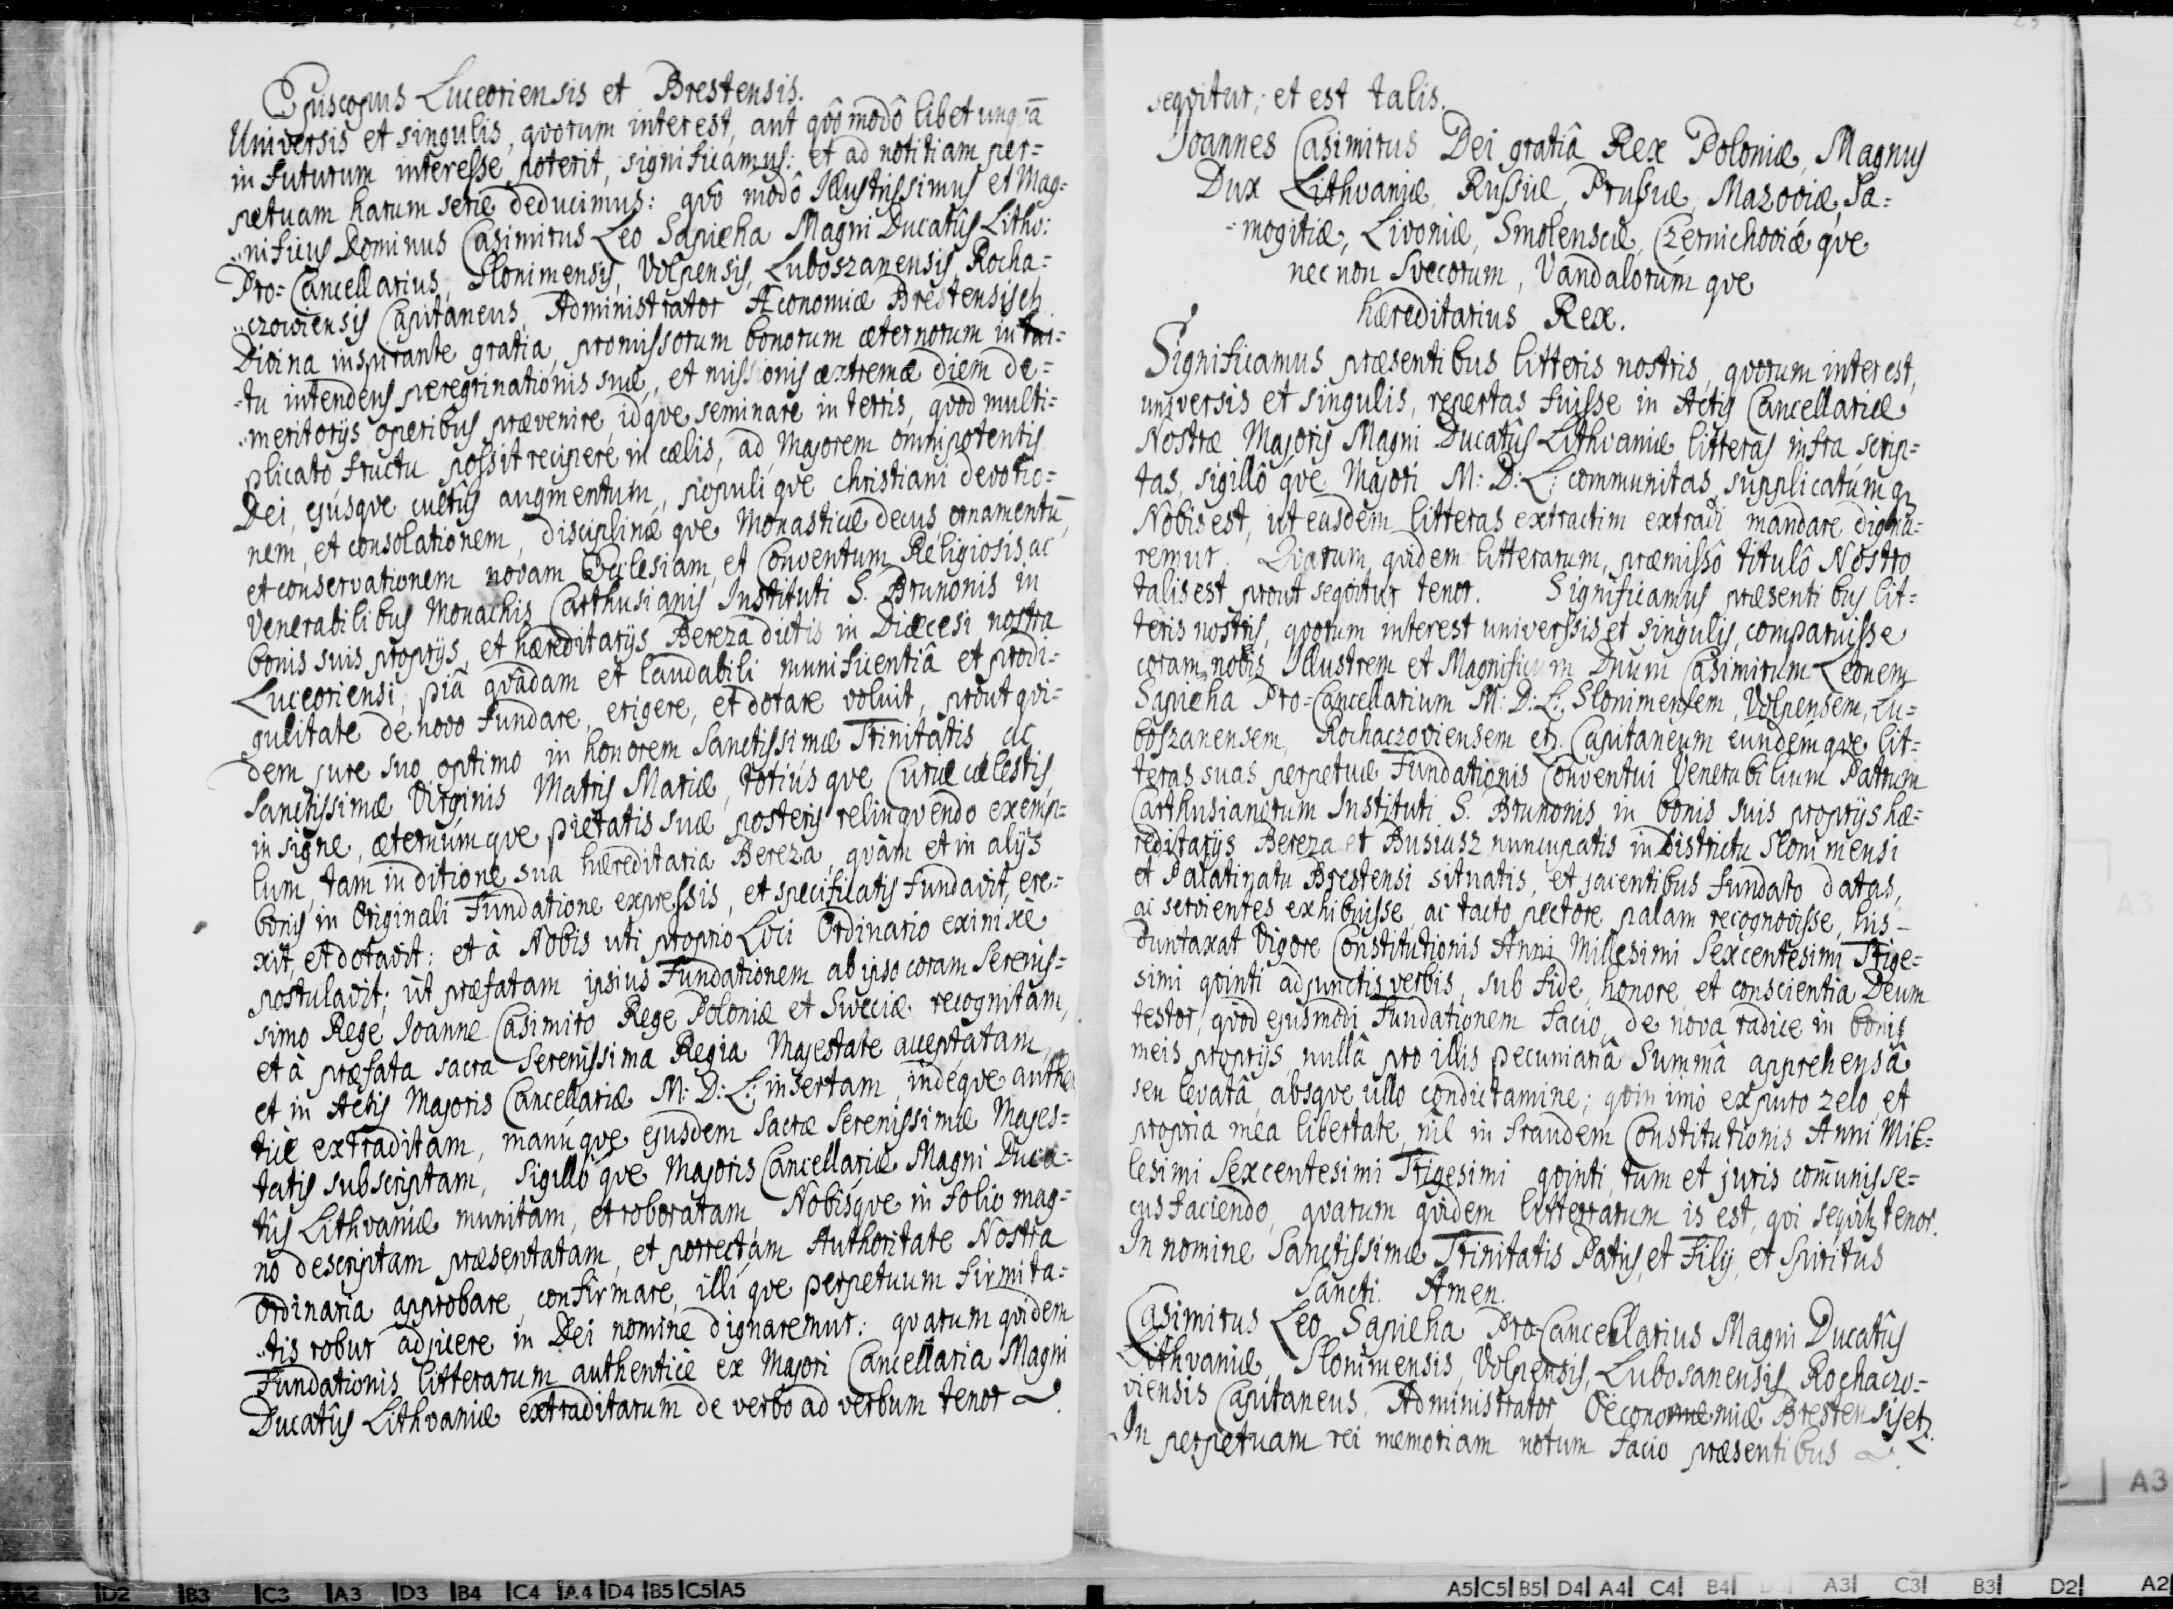 Episcopus Luceoriensis et Brestensis.
Universis et singulis, qvorum interest, aut qvô modô libet unqua̅
in futurum interesse poterit, significamus: et ad notitiam per=
petuam harum serie deducimus: qvô modô Illustrissimus et Mag=
nificus Dominus Casimirus Leo Sapieha Magni Ducatûs Lithv:
Pro=Cancellarius, Slonimensis, Volpensis, Luboszanensis, Rocha=
czoviensis Capitaneus, Administrator Æconomiæ Brestensis etz
Divina inspirante gratia, promissorum bonorum æternorum intui=
tu intendens peregrinationis suæ, et missionis extremæ diem de=
meritorijs operibus prævenire, idqve seminare in terris, qvod multi=
plicato fructu possit recipere in cælis, ad Majorem omnipotentis
Dei, ejusqve cultûs augmentum, populi qve christiani devotio=
nem, et consolationem, disciplinæ qve Monasticæ decus ornamentu̅
et conservationem novam Ecclesiam, et Conventum Religiosis ac
Venerabilibus Monachis Carthusianis Instituti S. Brunonis in
bonis suis proprijs, et hæreditarijs Bereza dictis in Diæcesi nostra
Luceoriensi, piâ qvâdam et laudabili munificentiâ et prodi=
gulitate de novo fundare, erigere, et dotare voluit, prout qvi=
dem jure suo optimo in honorem Sanctissimæ Trinitatis ac
Sanctissimæ Virginis Matris Mariæ, totiusqve Curiæ cælestis,
in signe, æternúmqve pietatis suæ posteris relinqvendo exemp=
lum, tam in ditione sua hæreditaria Bereza, qvàm et in alijs
bonis in Originali Fundatione expressis, et specificatis fundavit, ere=
xit, et dotavit: et à Nobis uti proprio Loci Ordinario eximiè
postulavit; ut præfatam ipsius Fundationem ab ipso coram Serenis=
simo Rege Joanne Casimiro Rege Poloniæ et Sveciæ recognitam,
et à præfata sacra Serenissima Regia Majestate acceptatam
et in Actis Majoris Cancellariæ M: D: L: insertam, indeqve authen
ticè extraditam, manúqve ejusdem Sacræ Serenissimæ Majes=
tatis subscriptam, sigillóqve Majoris Cancellariæ Magni Duca=
tûs Lithvaniæ munitam, et roboratam, Nobisqve in folio mag=
no descriptam præsentatam, et porrectam Authoritate Nostra
Ordinaria approbare, confirmare, illíqve perpetuum firmita=
tis robur adjicere in Dei nomine dignaremur: qvarum qvidem
Fundationis litterarum authenticè ex Majori Cancellaria Magni
Ducatûs Lithvaniæ extraditarum de verbo ad verbum tenor
seqvitur; et est talis.
Joannes Casimirus Dei gratiâ Rex Poloniæ, Magnus
Dux Lithvaniæ, Russiæ, Prussiæ, Mazoviæ, Sa=
=mogitiæ, Livoniæ, Smolensciæ, Czernichoviæ qve
nec non Svecorum, Vandalorúmqve
hæreditarius Rex.
Significamus præsentibus litteris nostris, qvorum interest,
universis et singulis, repertas fuisse in Actis Cancellariæ
Nostræ Majoris Magni Ducatûs Lithvaniæ litteras infra scrip=
tas, sigillôqve Majori M: D: L: communitas, supplicatúmq
Nobis est, ut easdem litteras extractim extradi mandare digna=
remur. Qvarum qvidem litterarum, præmissô titulô Nostro
talis est prout seqvitur tenor. Significamus præsentibus lit=
teris nostris, qvorum interest universsis et singulis, comparuisse
coram nobis Illustrem et Magnificum Dnum Casimirum Leonem
Sapieha Pro=Cancellarium M: D: L: Slonimensem, Volpensem, Lu=
boszanensem, Rochaczoviensem etz. Capitaneum eundémqve lit=
teras suas perpetuæ Fundationis Conventui Venerabilium Patrum
Carthusianorum Instituti S. Brunonis, in bonis suis proprijs hæ=
reditarijs Bereza et Busiasz nuncupatis in Districtu Slonimensi
et Palatinatu Brestensi situatis, et jacentibus fundato datas,
ac servientes exhibuisse, ac tacto pectore palam recognovisse, his
duntaxat Vigore Constitutionis Anni Millesimi Sexcentesimi Trige=
simi qvinti adjunctis verbis, sub fide, honore, et conscientia Deum
testor, qvòd ejusmodi Fundationem facio, de nova radice in bonis
meis proprijs, nullâ pro illis pecuniariâ Summâ apprehensâ
seu levatâ, absqve ullo condictamine; qvin imò ex puro zelo, et
propria mea libertate, nil in fraudem Constitutionis Anni Mil=
lesimi Sexcentesimi Trigesimi qvinti, tum et juris co̅munis se=
cus faciendo, qvarum qvidem litterarum is est, qvi seqvitz tenor.
In nomine Sanctissimæ Trinitatis Patris, et Filij, et Spiritus
Sancti. Amen.
Casimirus Leo Sapieha Pro-Cancellarius Magni Ducatûs
Lithvaniæ, Slonimensis, Volpensis, Lubosanensis, Rochaczo=
viensis Capitaneus, Administrator Oeconomiæ Brestensis etz.
In perpetuam rei memoriam notum facio præsentibus